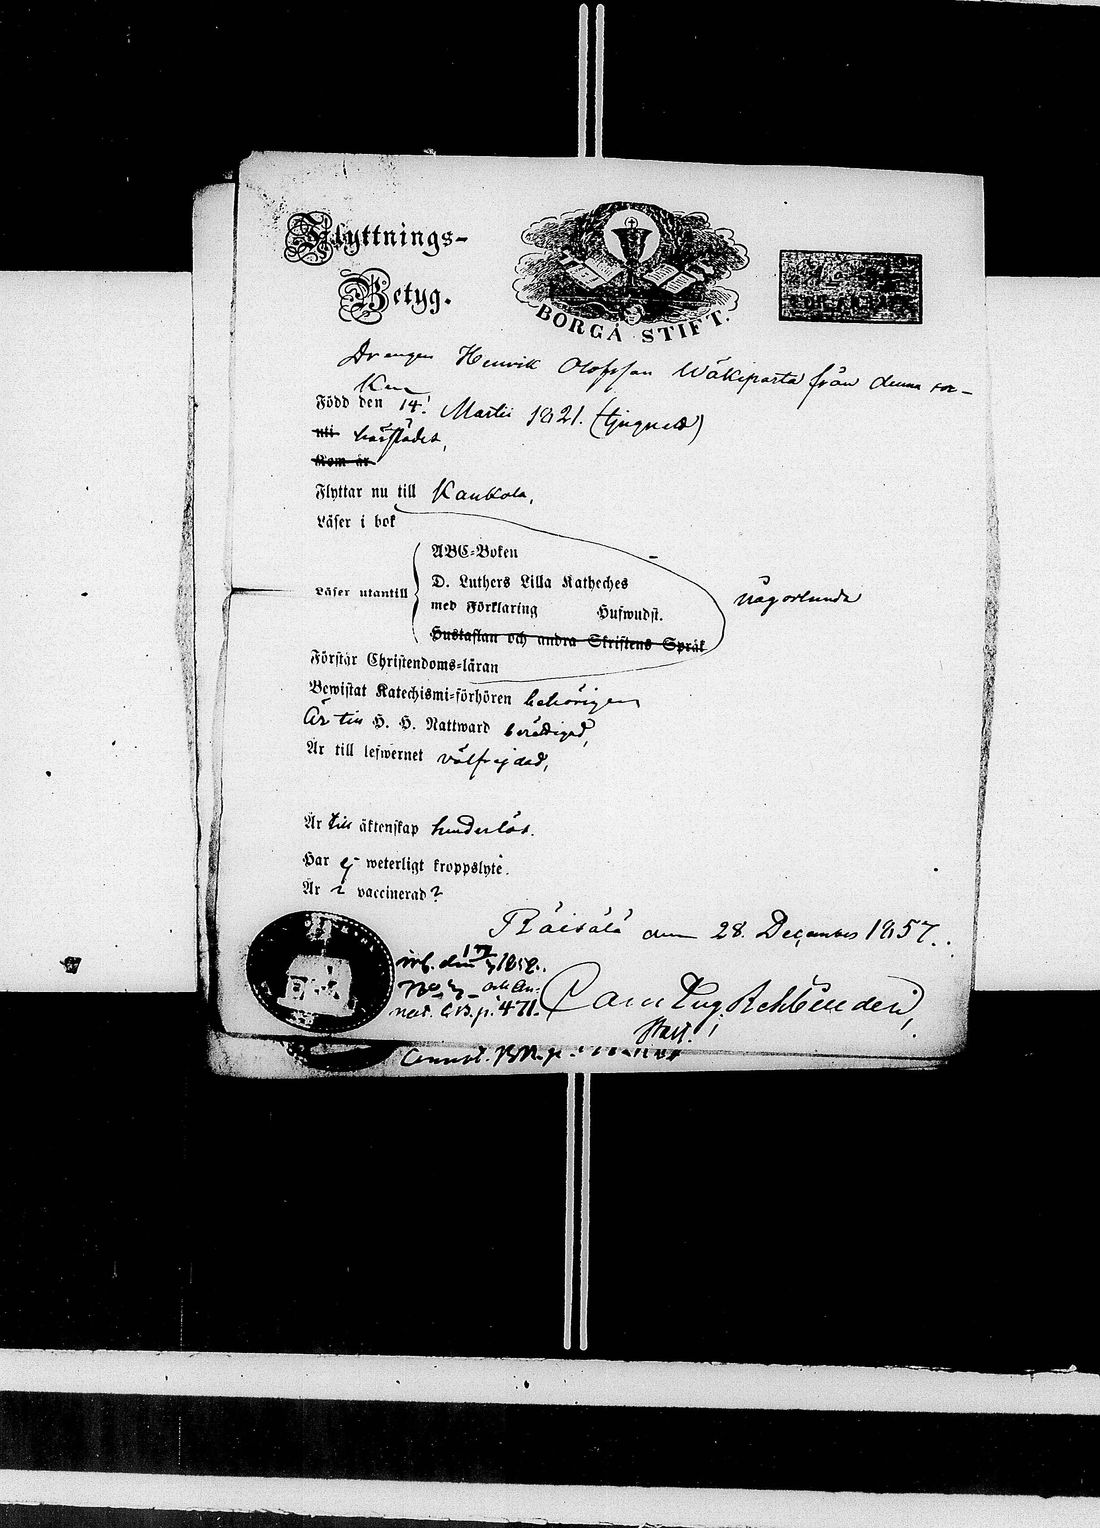 Flyttnings-
Betyg.
BORGÅ STIFT.
Drengen Henrik Olofsson Wäkiparta från denna soc-
ken
Född den 14. Martii 1821. (tjugued)
uti härstädes,
Kom år
Flyttar nu till Kaukola,
Läser i bok
Läser utantill
ABC-Boken
D. Luthers Lilla Katheches
med Förklaring Hufwudst.
Hustaflan och andra Skriftens Språk
någorlunda
Förstår Christendoms-läran
Bewistat Katechismi-förhören behörigen
Är till H. H. Nattward berättigad,
Är till lefwernet välfrejdad,
Är till äktenskap hinderlös.
Har ej weterligt kroppslyte.
Är vaccinerad?
Räisälä den 28. December 1857.
inl. den 1858.
No och An-
p. 471.